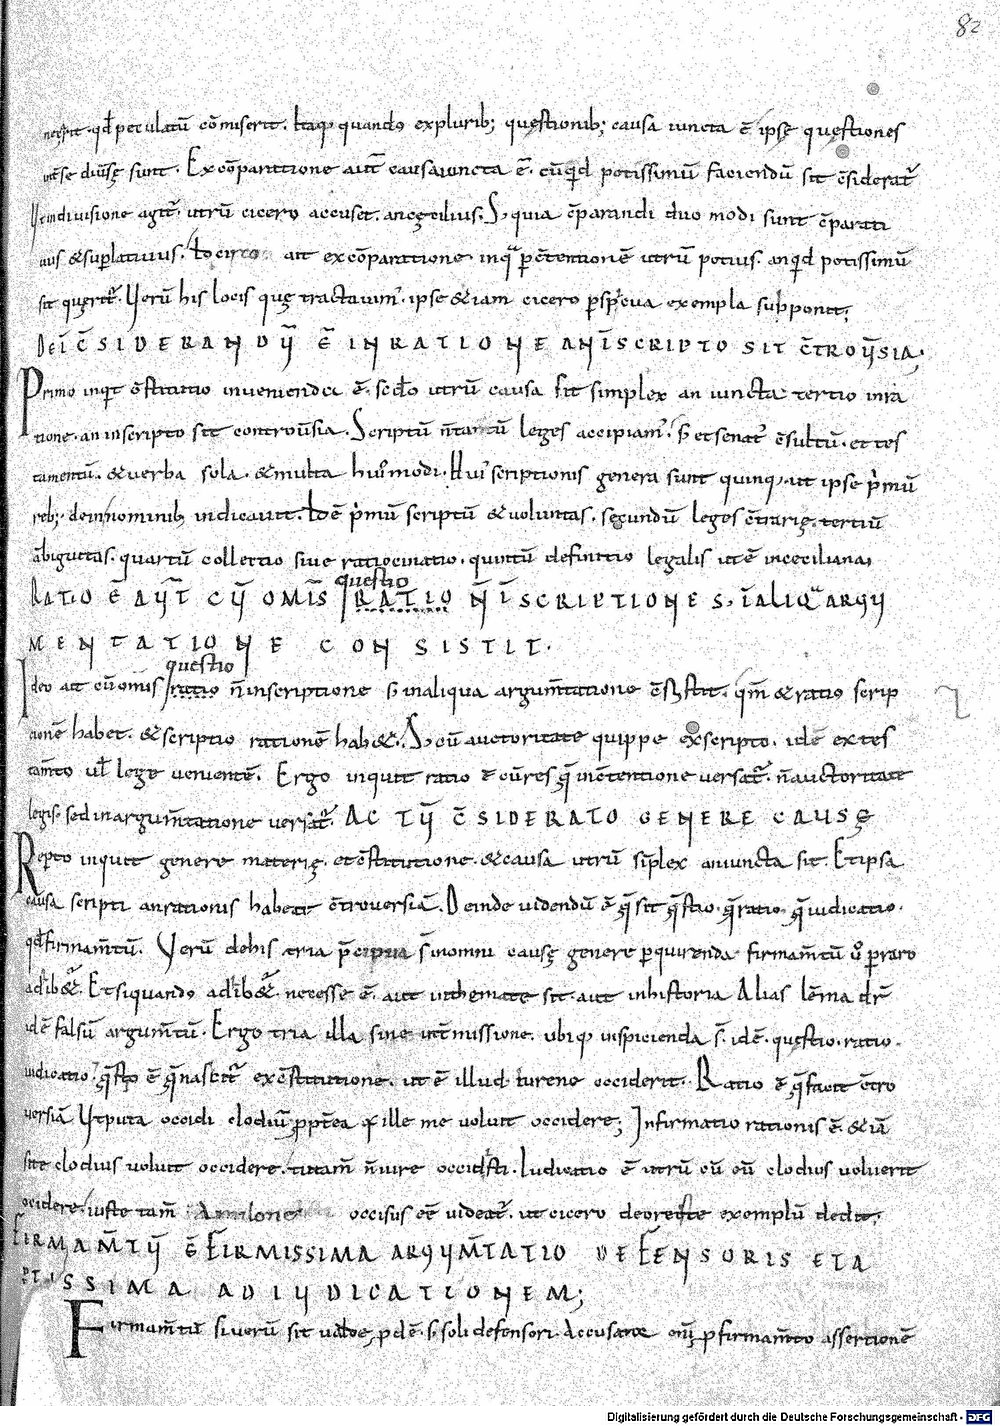 82
qđ peculatū cōmiserit. Itaq; quando explurib; quęstionib; causa iuncta ē ipsę quęstiones
int se diūsę sunt. Ex cōparatione aut̄ causa iuncta ē. cū quid potissimū faciendū sit c̄siderat̄
Vel in divisione agit̄. utrū cicero accuset. an cęcilius. S; quia c̄parandi duo modi sunt c̄parati
uus & suplatiuus. Idcirco ait ex cōparatione inq̄ p c̄tentionē utrū potius. an qd potissimū
sit querit̄. Verū his locis quę tractauim. ipse &iam cicero pspicua exempla subponit;
DEI C̄SIDERANDŪ Ē IN RATIONE AN Ī SCRIPTO SIT C̄TROŪSIA;
Primo inqt c̄stitutio invenienda ē. scdo utrū causa sit simplex an iuncta tertio in ra
tione. an inscripto sit controūsia. Scriptū n̄ tantū leges accipiam. s; et senat c̄sultū. et tes
tamentū. & verba sola. & multa hui modi. Hui scriptionis genera sunt quinq; ut ipse pmū
reb; dein nominib; indicauit. Id ē pmū scriptū & voluntas. secundū leges c̄trarię. tertiū
ābiguitas. quartū collectio siue ratiocinatio. quintū definitio legalis ut ē in ceciliana;
questio
RATIO Ē AUT̄ CŪ OMIS̄ RATIO N̄ Ī SCRIPTIONE S; Ī ALIQUA ARGU
MENTATIONE CONSISTIT.
questio
Ideo ait cū omis ratio n̄ inscriptione s; in aliqua argum̄tatione c̄sistit. qm̄ & ratio scrip
cionē habet. & scriptio rationē hab&. S; cū auctoritate quippe ex scripto. idē ex tes
tam̄to ul̄ lege uenientē. Ergo inquit ratio ē cū res q̄ in c̄tentione versat̄. n̄ auctoritate
legis. sed in argum̄tatione versat̄. AC TŪ C̄SIDERATO GENERE CAUSĘ
Repto inquit genere materię. et c̄stitutione. & causa utrū siplex an iuncta sit. Et ipsa
causa scripti an rationis habeat c̄troversiā. Deinde uidendū ē q̄ sit q̄stio. q̄ ratio. q̄ iudicatio.
qđ firmam̄tū. Verū de his tria pcipua s̄ in omni causę genere pquirenda firmam̄tū u̇ praro
adhib&̄. Et si quando adhib&̄. necesse ē. aut in themate sit. aut in historia Alias lēma dr̄
idē falsū argum̄tū. Ergo tria illa sine int̄missione. ubiq; inspicienda s̄. idē. quęstio. ratio.
iudicatio. q̄stio ē q̄ nascit̄ ex c̄stitutione. ut ē illud iurene occiderit. Ratio ē q̄ facit c̄tro
uersiā Ut puta occidi clodiū pptea q ille me voluit occidere; Infirmatio rationis ē. & iā
si te clodius voluit occidere. tutam̄ n̄ iure occidisti. Iudicatio ē utrū cū eū clodius voluerit
occidere. iuste tam̄ A milone occisus eē uideat̄. ut cicero de oreste exemplū dedit;
FIRMAM̄TŪ Ē FIRMISSIMA ARGUM̄TATIO DEFENSORIS ET A
PTISSIMA AD IUDICATIONEM;
Firmam̄tū si verū sit p firmam̄to assertionē
Digitalisierung gefördert durch die Deutsche Forschungsgemeinschaft - DFG